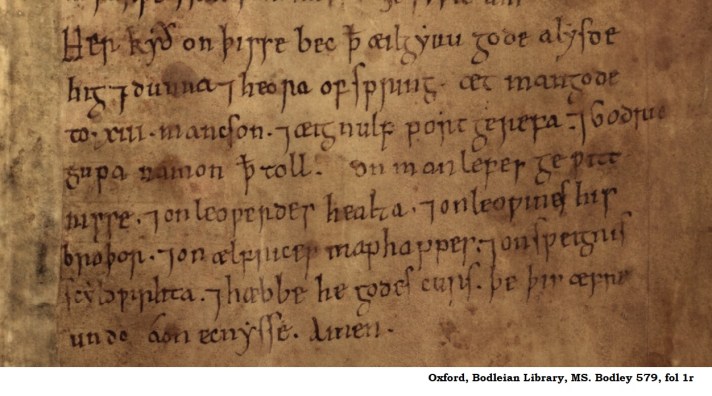 Her kyð on þisse bec ꝥ æilgyuu gode alysde
hig ⁊ dunna ⁊ heora ofspring. æt mangode
to .xiii. mancson. ⁊ æignulf portgerefa. ⁊ Godric
gupa namon ꝥ toll. on manlefes gewitt
nisse. ⁊ on leowerdes healta. ⁊ on leowines his
broþor. ⁊ on ælfrices maphappes. ⁊ on sweignis
scyldwirhta. ⁊ hæbbe he godes curs. þe þis æfre
undo á on ecnysse. Amen.
Oxford, Bodleian Library, MS. Bodley 579, fol 1r